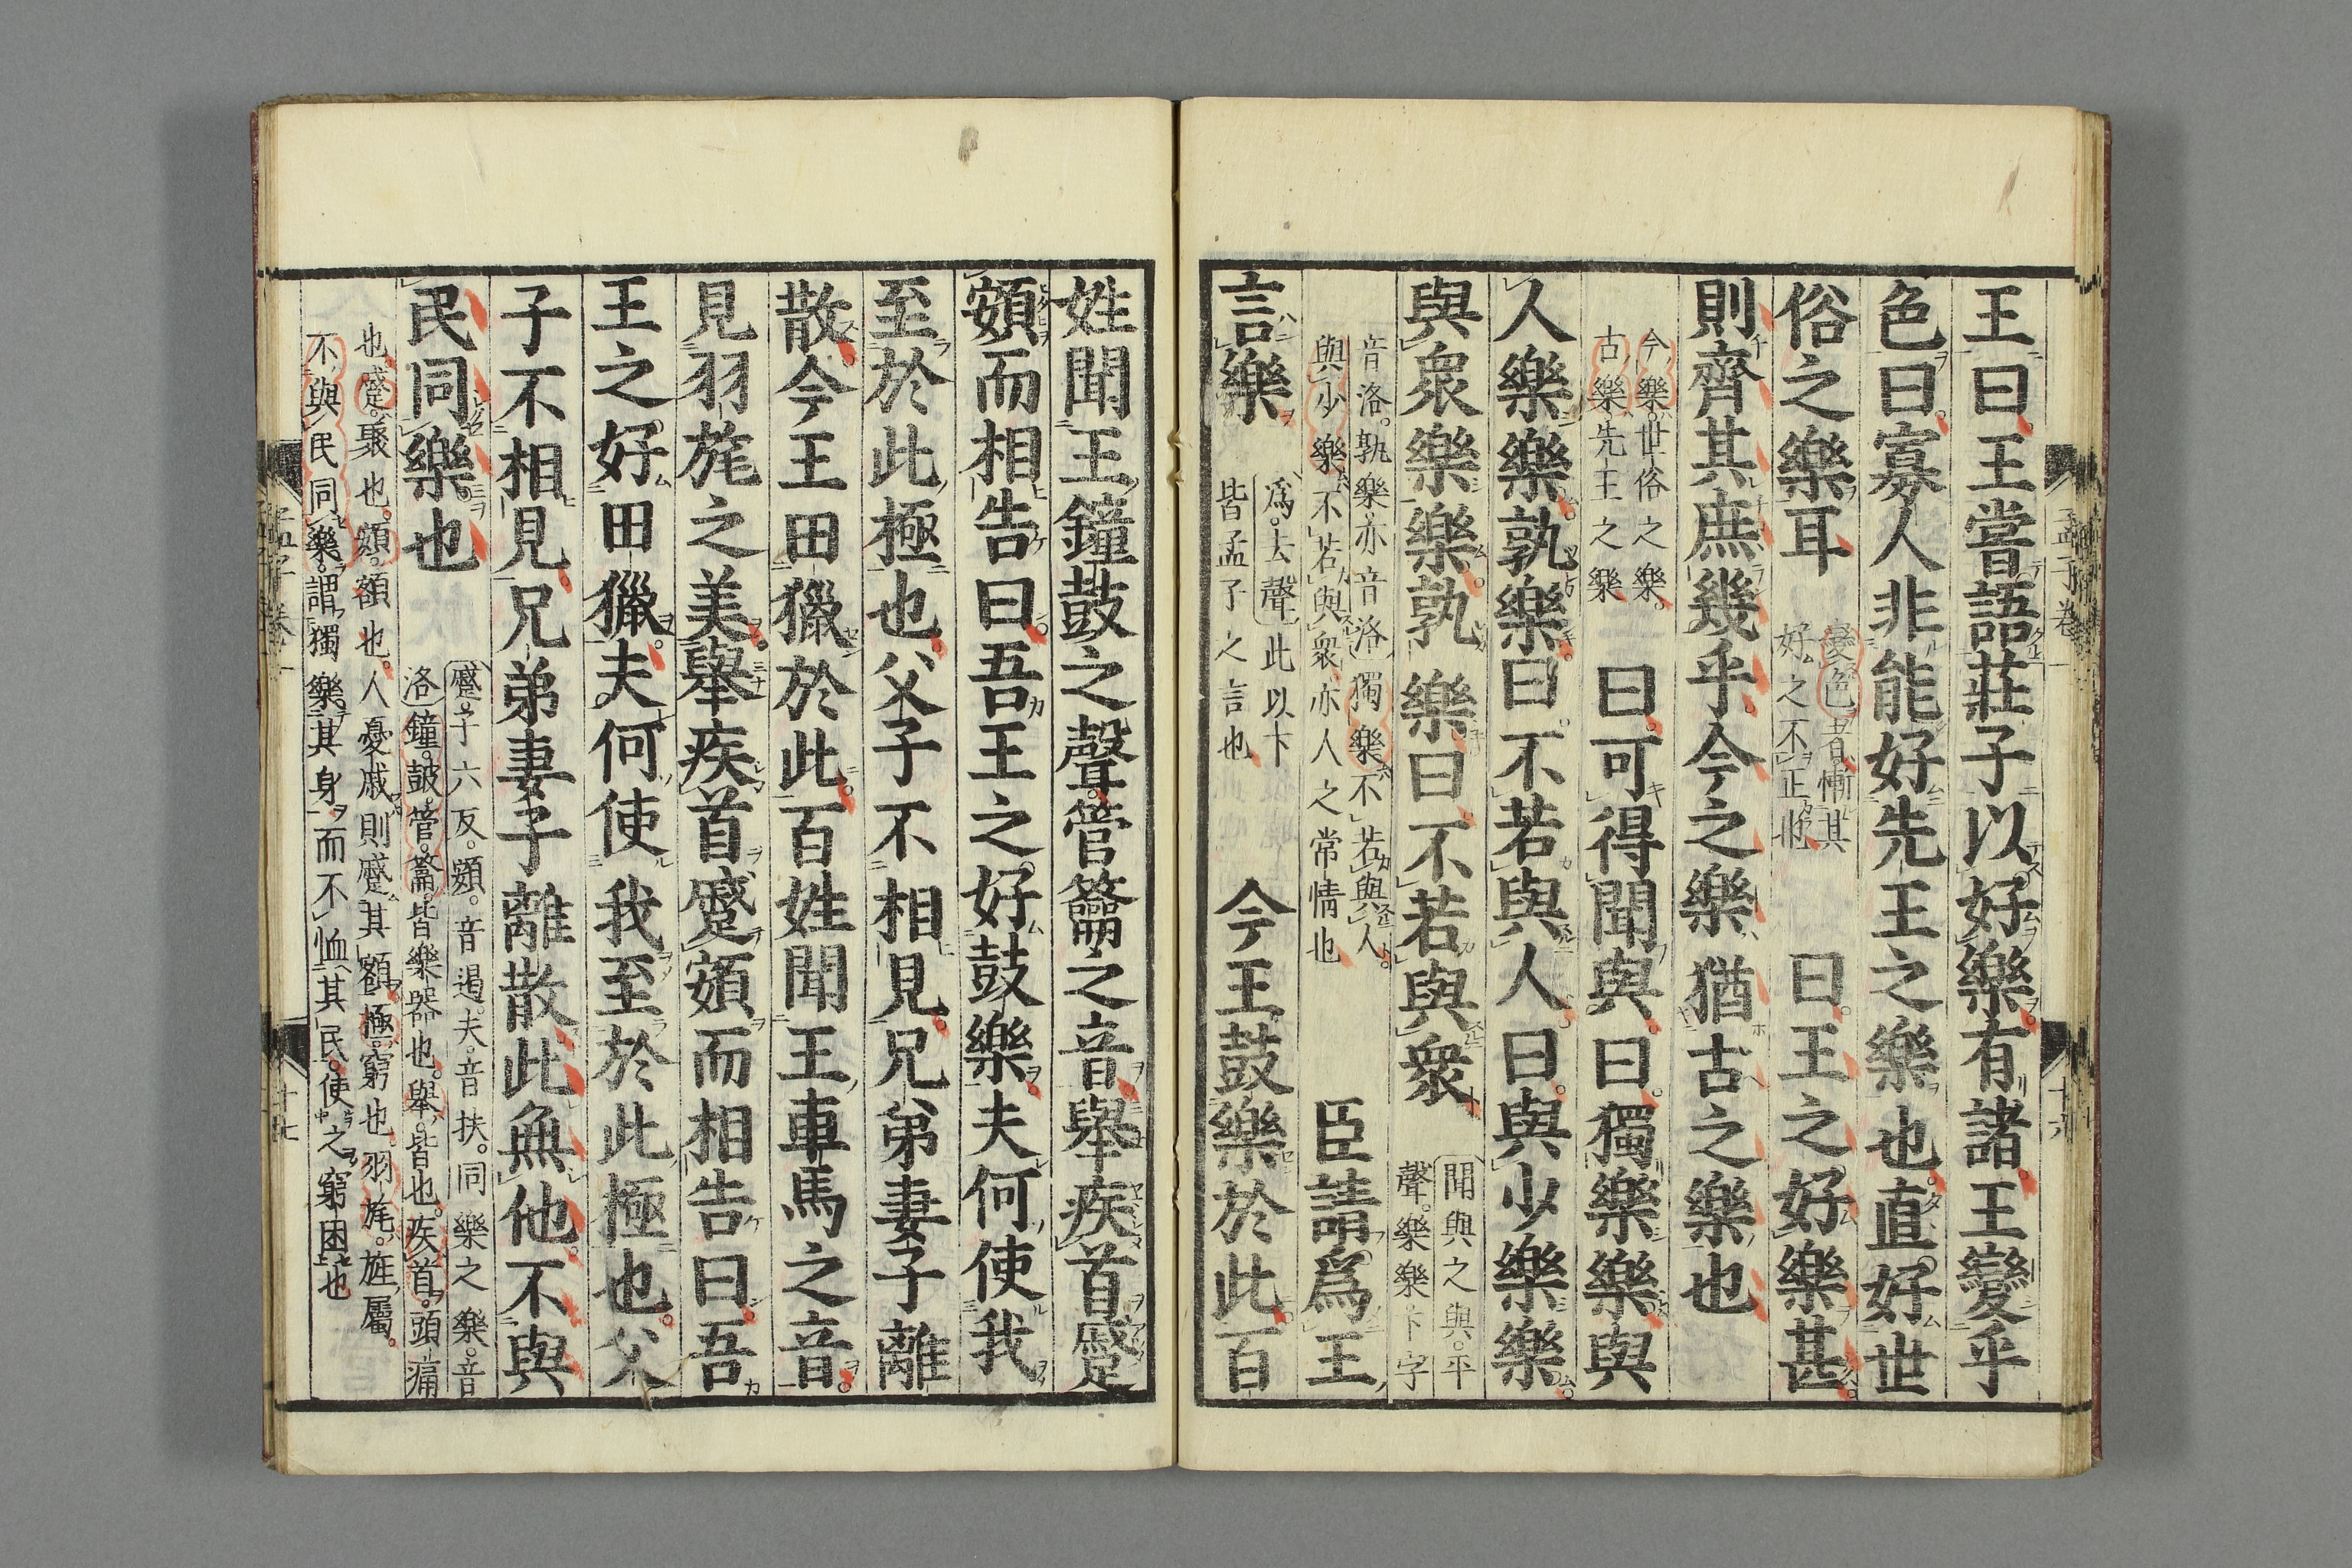 王曰王嘗語莊子以好樂有諸王變乎
色曰寡人非能好先王之樂也直好世
俗之樂耳
變色者慚其
好之不正也
曰王之好樂甚
則齊其庶幾乎今之樂猶古之樂也
今樂世俗之樂
古樂先王之樂
曰可得聞與曰獨樂樂與
人樂樂孰樂曰不若與人曰與少樂樂
與衆樂樂孰樂曰不若與衆
聞與之與平
聲樂樂下字
音洛孰樂亦音洛獨樂不若與人
與少樂不若與衆亦人之常情也
臣請爲王
言樂
爲去聲此以下
皆孟子之言也
今王鼓樂於此百
孟子卷一
十六
姓聞王鐘鼓之聲管籥之音舉疾首蹙
頞而相告曰吾王之好鼓樂夫何使我
至於此極也父子不相見兄弟妻子離
散今王田獵於此百姓聞王車馬之音
見羽旄之美舉疾首蹙頞而相告曰吾
王之好田獵夫何使我至於此極也父
子不相見兄弟妻子離散此無他不與
民同樂也
蹙子六反頞音遏夫音扶同樂之樂音
洛鐘鼓管籥皆樂器也舉皆也疾首頭痛
也蹙聚也頞額也人憂戚則蹙其額極窮也羽旄旌屬
不與民同樂謂獨樂其身而不恤其民使之窮困也
孟子卷一
十七